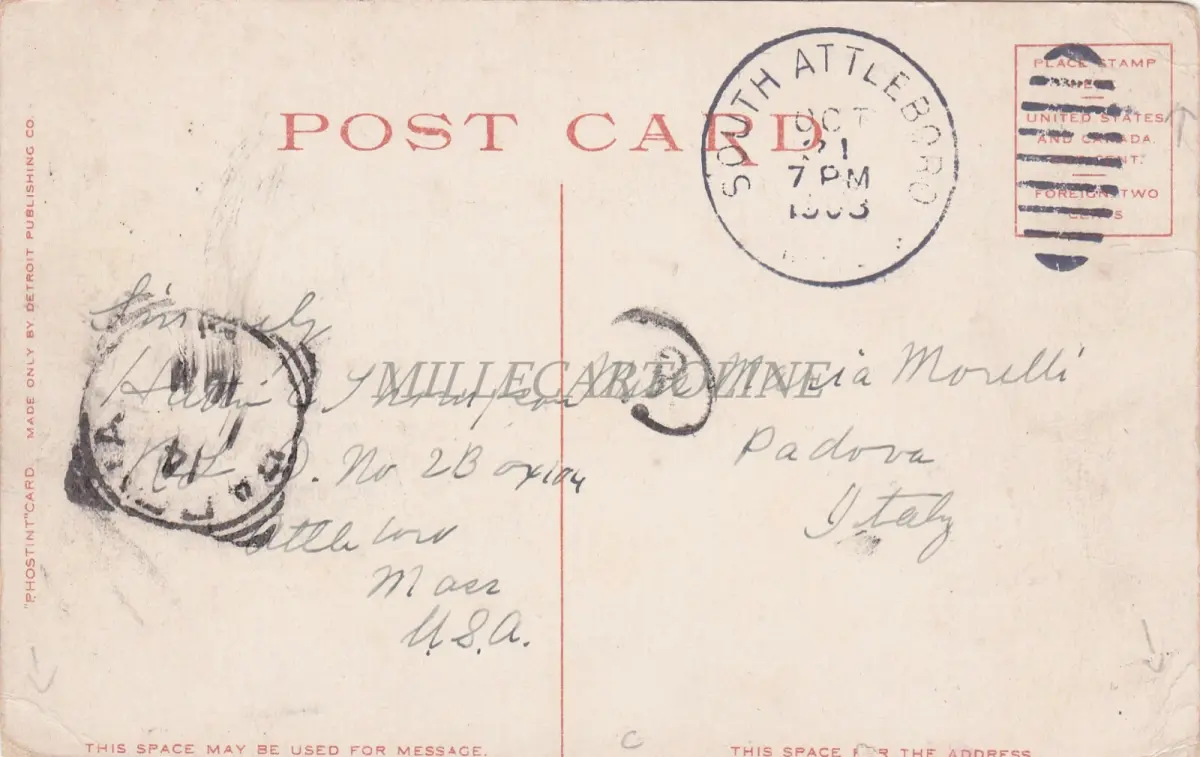 POST CARD
SOUTH ATTLEBORO
OCT
21
7 PM
PLACE STAMP
UNITED STATES
AND CANADA
FOREIGN TWO
CENTS
"PHOSTINT" CARD. MADE ONLY BY DETROIT PUBLISHING CO.
Sincerely
MILLECARTOLINE
No 2 Box 104
Attleboro
Mass
U.S.A.
Maria Morelli
Padova
Italy
THIS SPACE MAY BE USED FOR MESSAGE.
THIS SPACE FOR THE ADDRESS